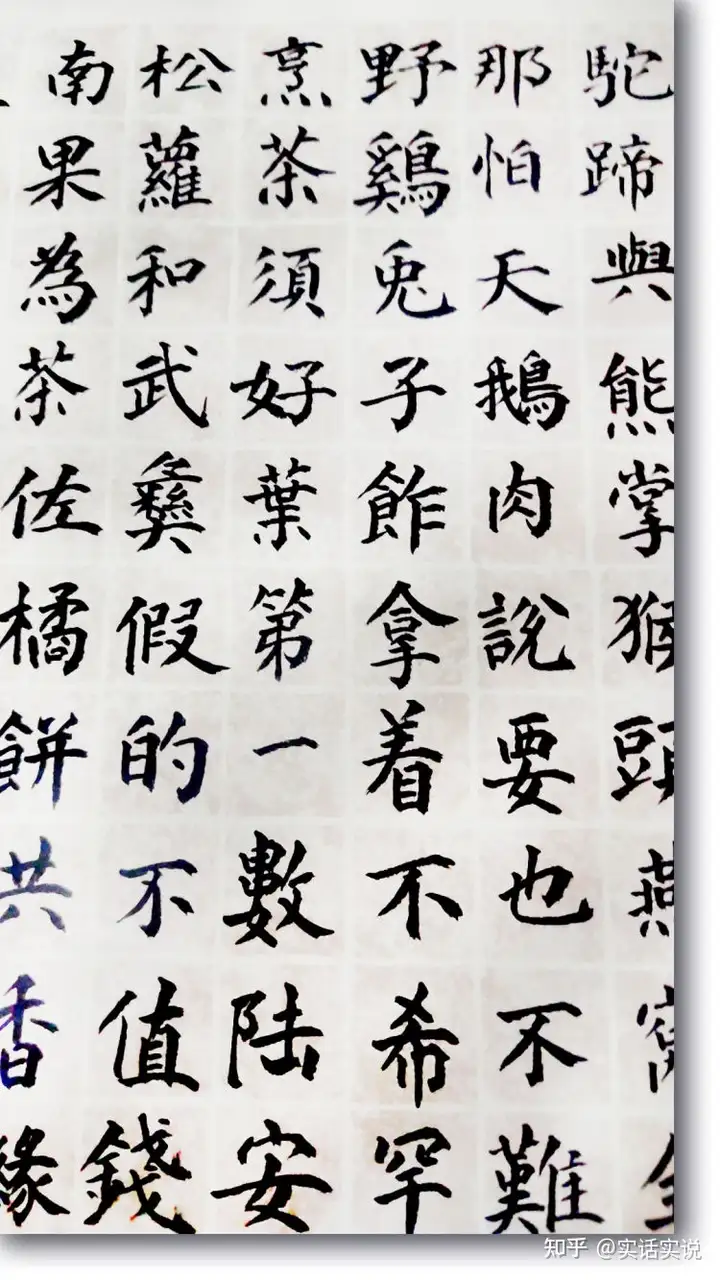 駝蹄與熊掌猴頭燕窩
那怕天鵝肉說要也不難
野鷄兔子飵拿着不希罕
烹茶須好葉第一數陆安
松蘿和武彝假的不值錢
南果為茶佐橘餅共香緣
知乎 @实话实说